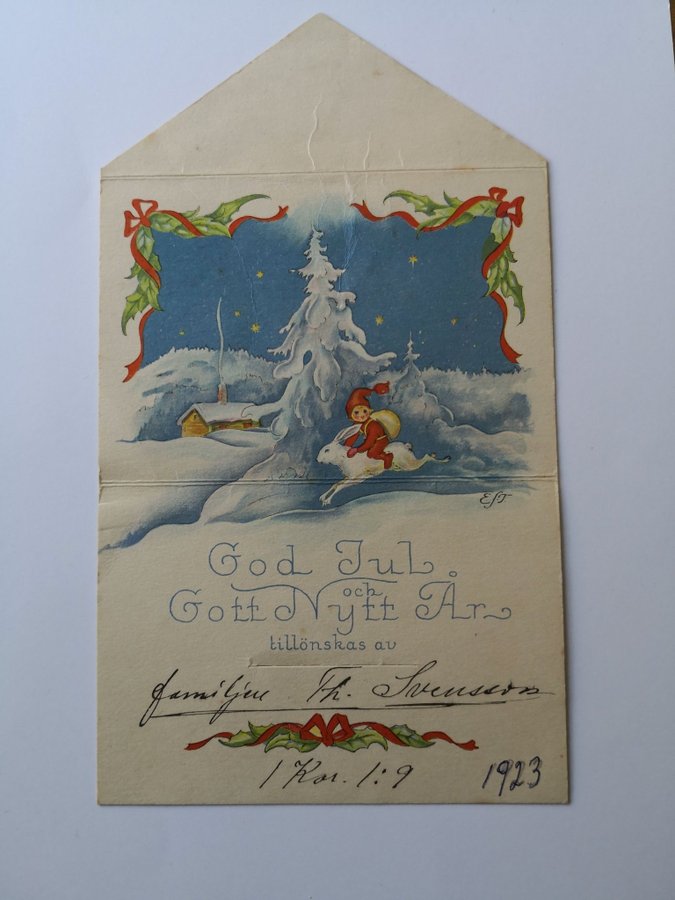 EST
God Jul
och
Gott Nytt År
tillönskas av
familjen Th. Svensson
1 Kor. 1:9 1923